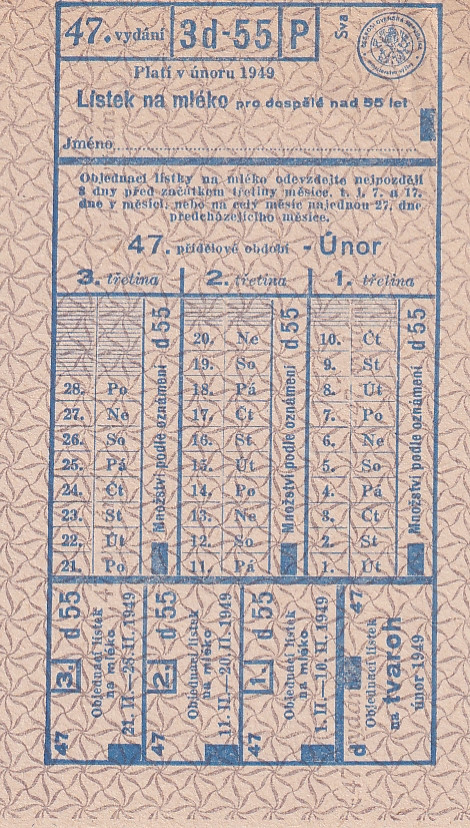 47. vydání 3d-55 P Sva
Platí v únoru 1949
Lístek na mléko pro dospělé nad 55 let
Jméno
Objednací lístky na mléko odevzdejte nejpozději
8 dny před začátkem třetiny měsíce, t. j. 7. a 17.
dne v měsíci, nebo na celý měsíc najednou 27. dne
předcházejícího měsíce.
47. přídělové období - Únor
3. třetina 2. třetina 1. třetina
20. Ne 10. Čt
19. So 9. St
28. Po 18. Pá 8. Út
27. Ne 17. Čt 7. Po
26. So 16. St 6. Ne
25. Pá 15. Út 5. So
24. Čt 14. Po 4. Pá
23. St 13. Ne 3. Čt
22. Út 12. So 2. St
21. Po 11. Pá 1. Út
Množství podle oznámení d 55
Množství podle oznámení d 55
Množství podle oznámení d 55
47 3. d 55
Objednací lístek
na mléko
21. II.—28. II. 1949
47 2. d 55
Objednací lístek
na mléko
11. II.—20. II. 1949
47 1. d 55
Objednací lístek
na mléko
1. II.—10. II. 1949
d 47
Objednací lístek
na tvaroh
únor 1949